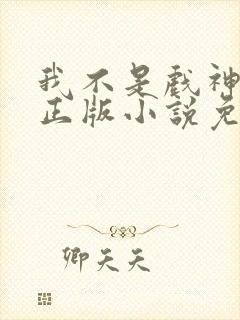 我不是戏神
正版小说免
卿天天